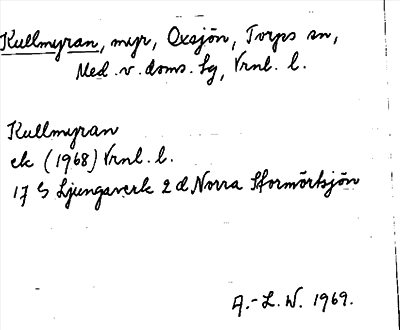 Kullmyran, myr, Oxsjön, Torps sn,
Med. v. doms. lg, Vrnl. l.
Kullmyran
ek (1968) Vrnl. l.
17 G Ljungaverk 2 d Norra Stormörtsjön
A.-L. W. 1969.